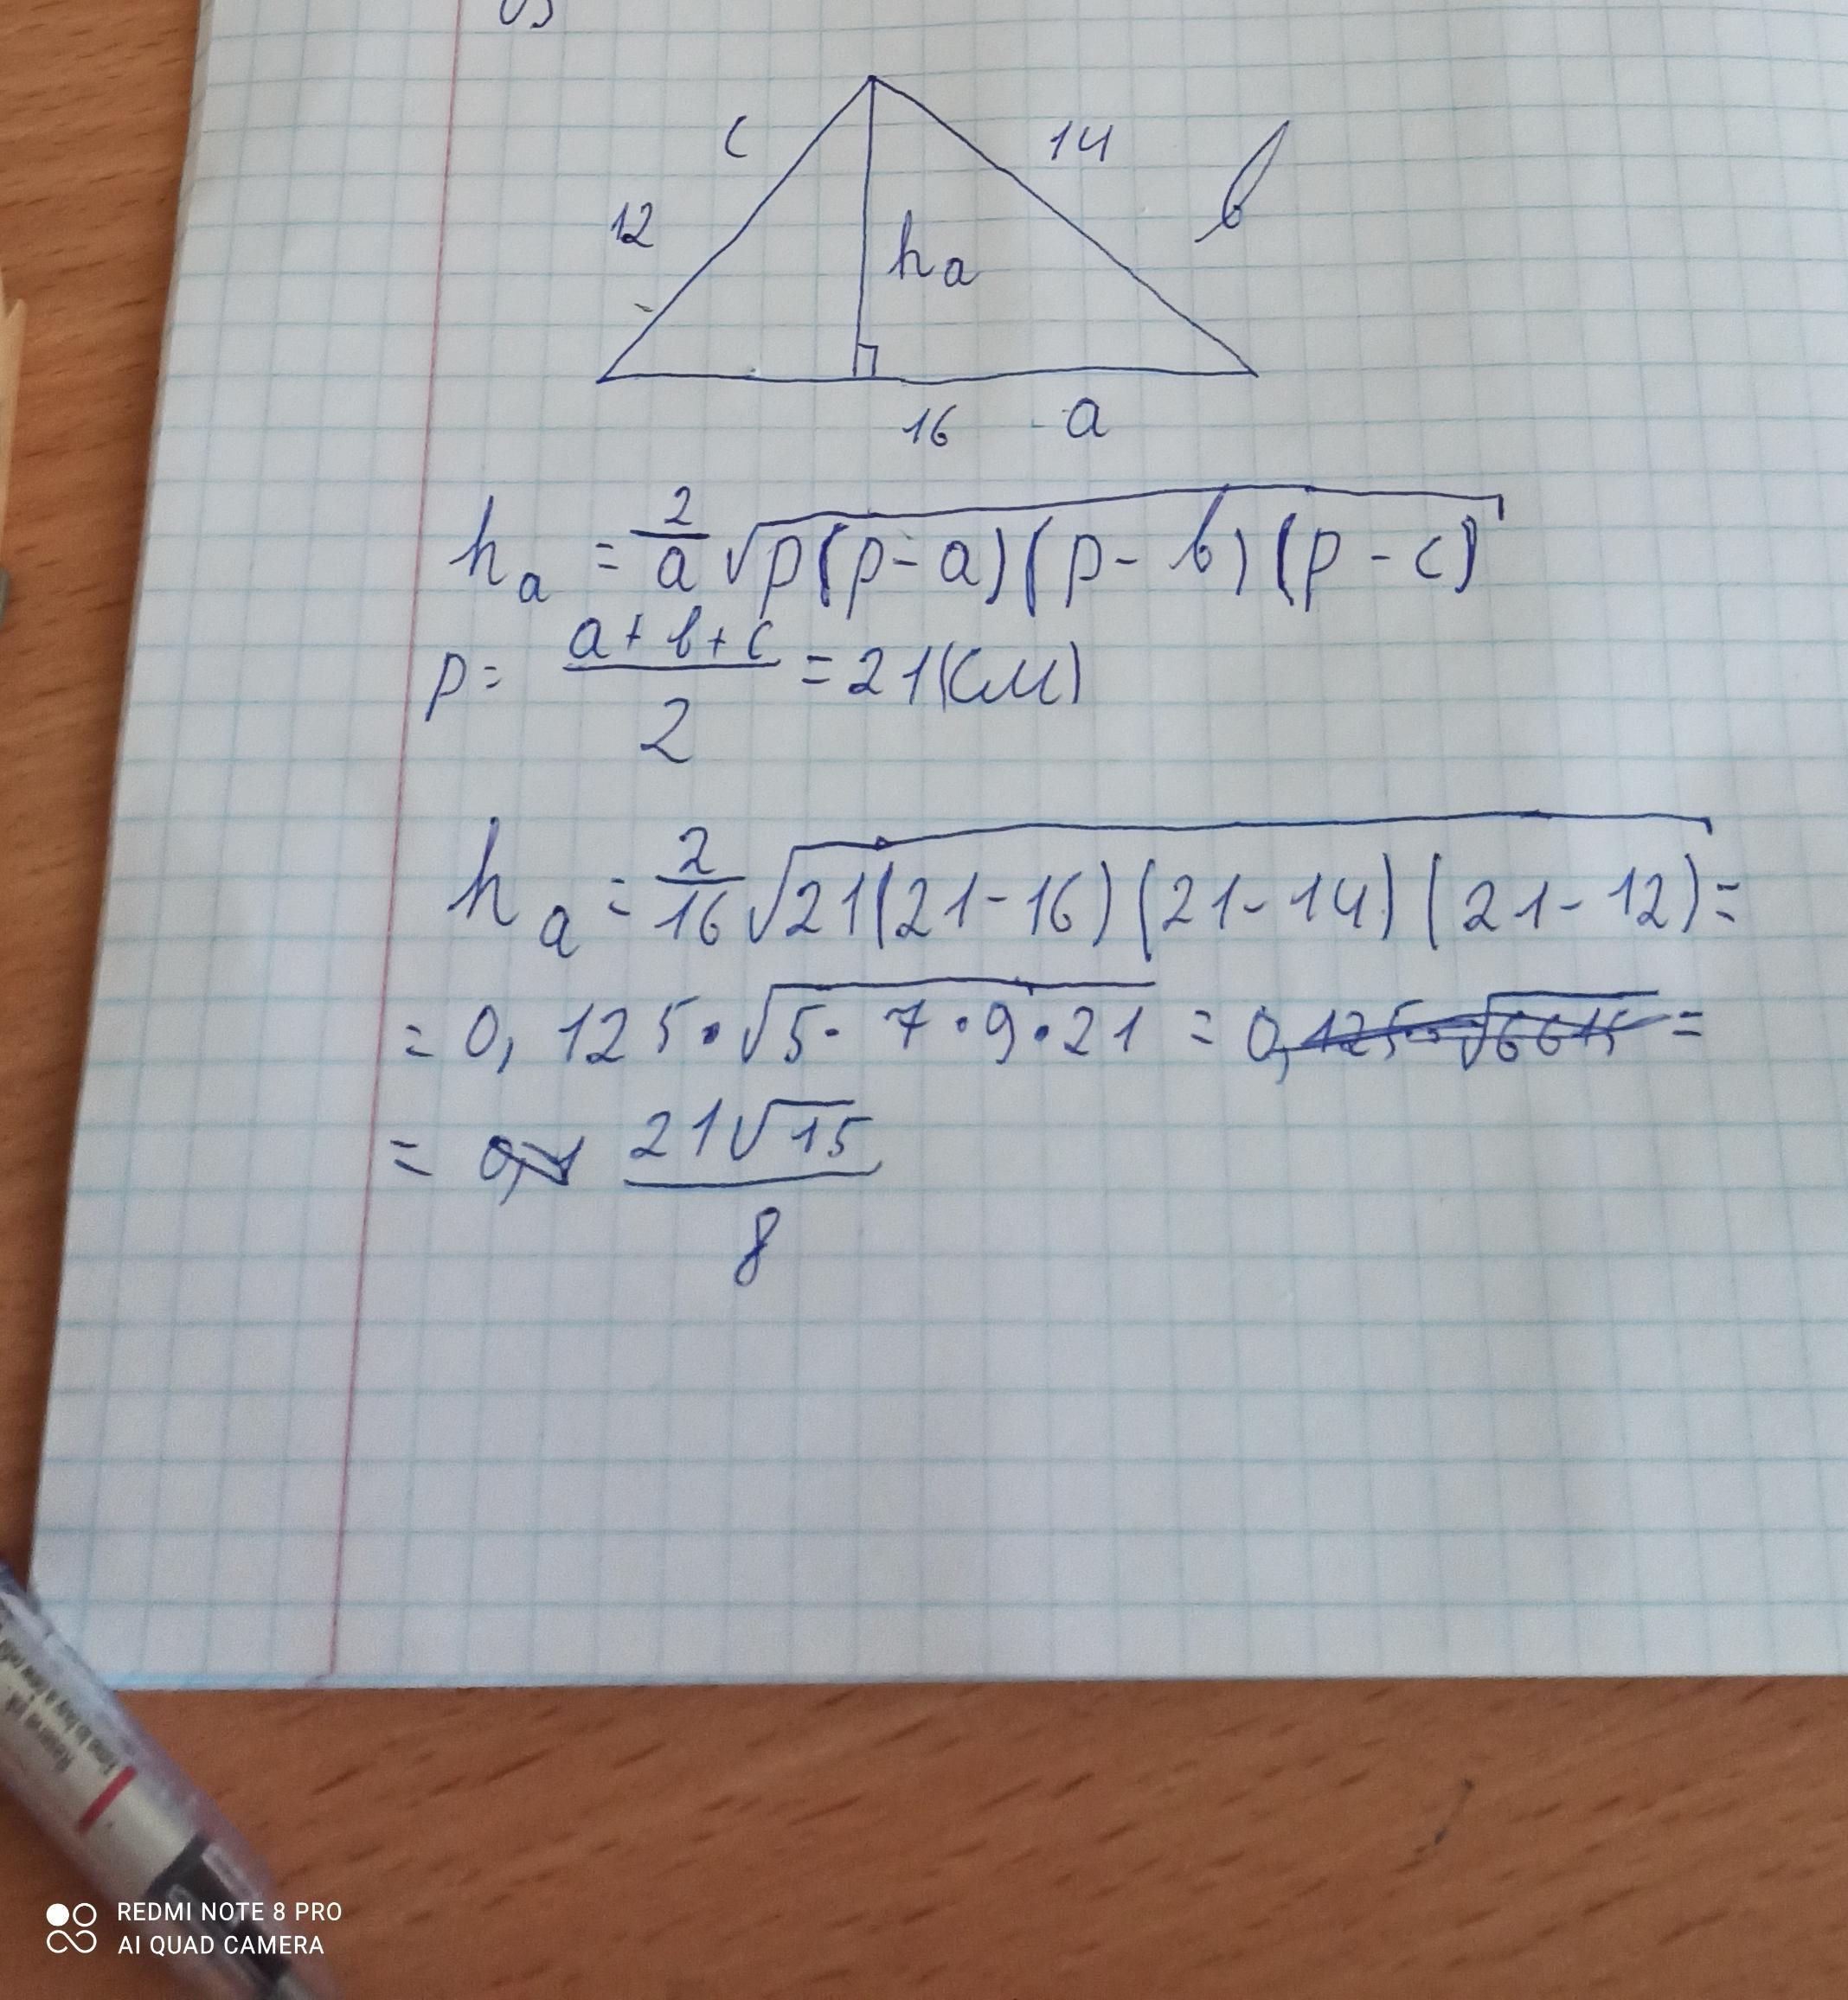 c
14
b
12
hₐ
16 a
hₐ = 2/a √p(p-a)(p-b)(p-c)
p = (a+b+c)/2 = 21(см)
hₐ = 2/16 √21(21-16)(21-14)(21-12) =
= 0,125·√5·7·9·21 = 0,125·√6615 =
= 21√15/8
REDMI NOTE 8 PRO
AI QUAD CAMERA